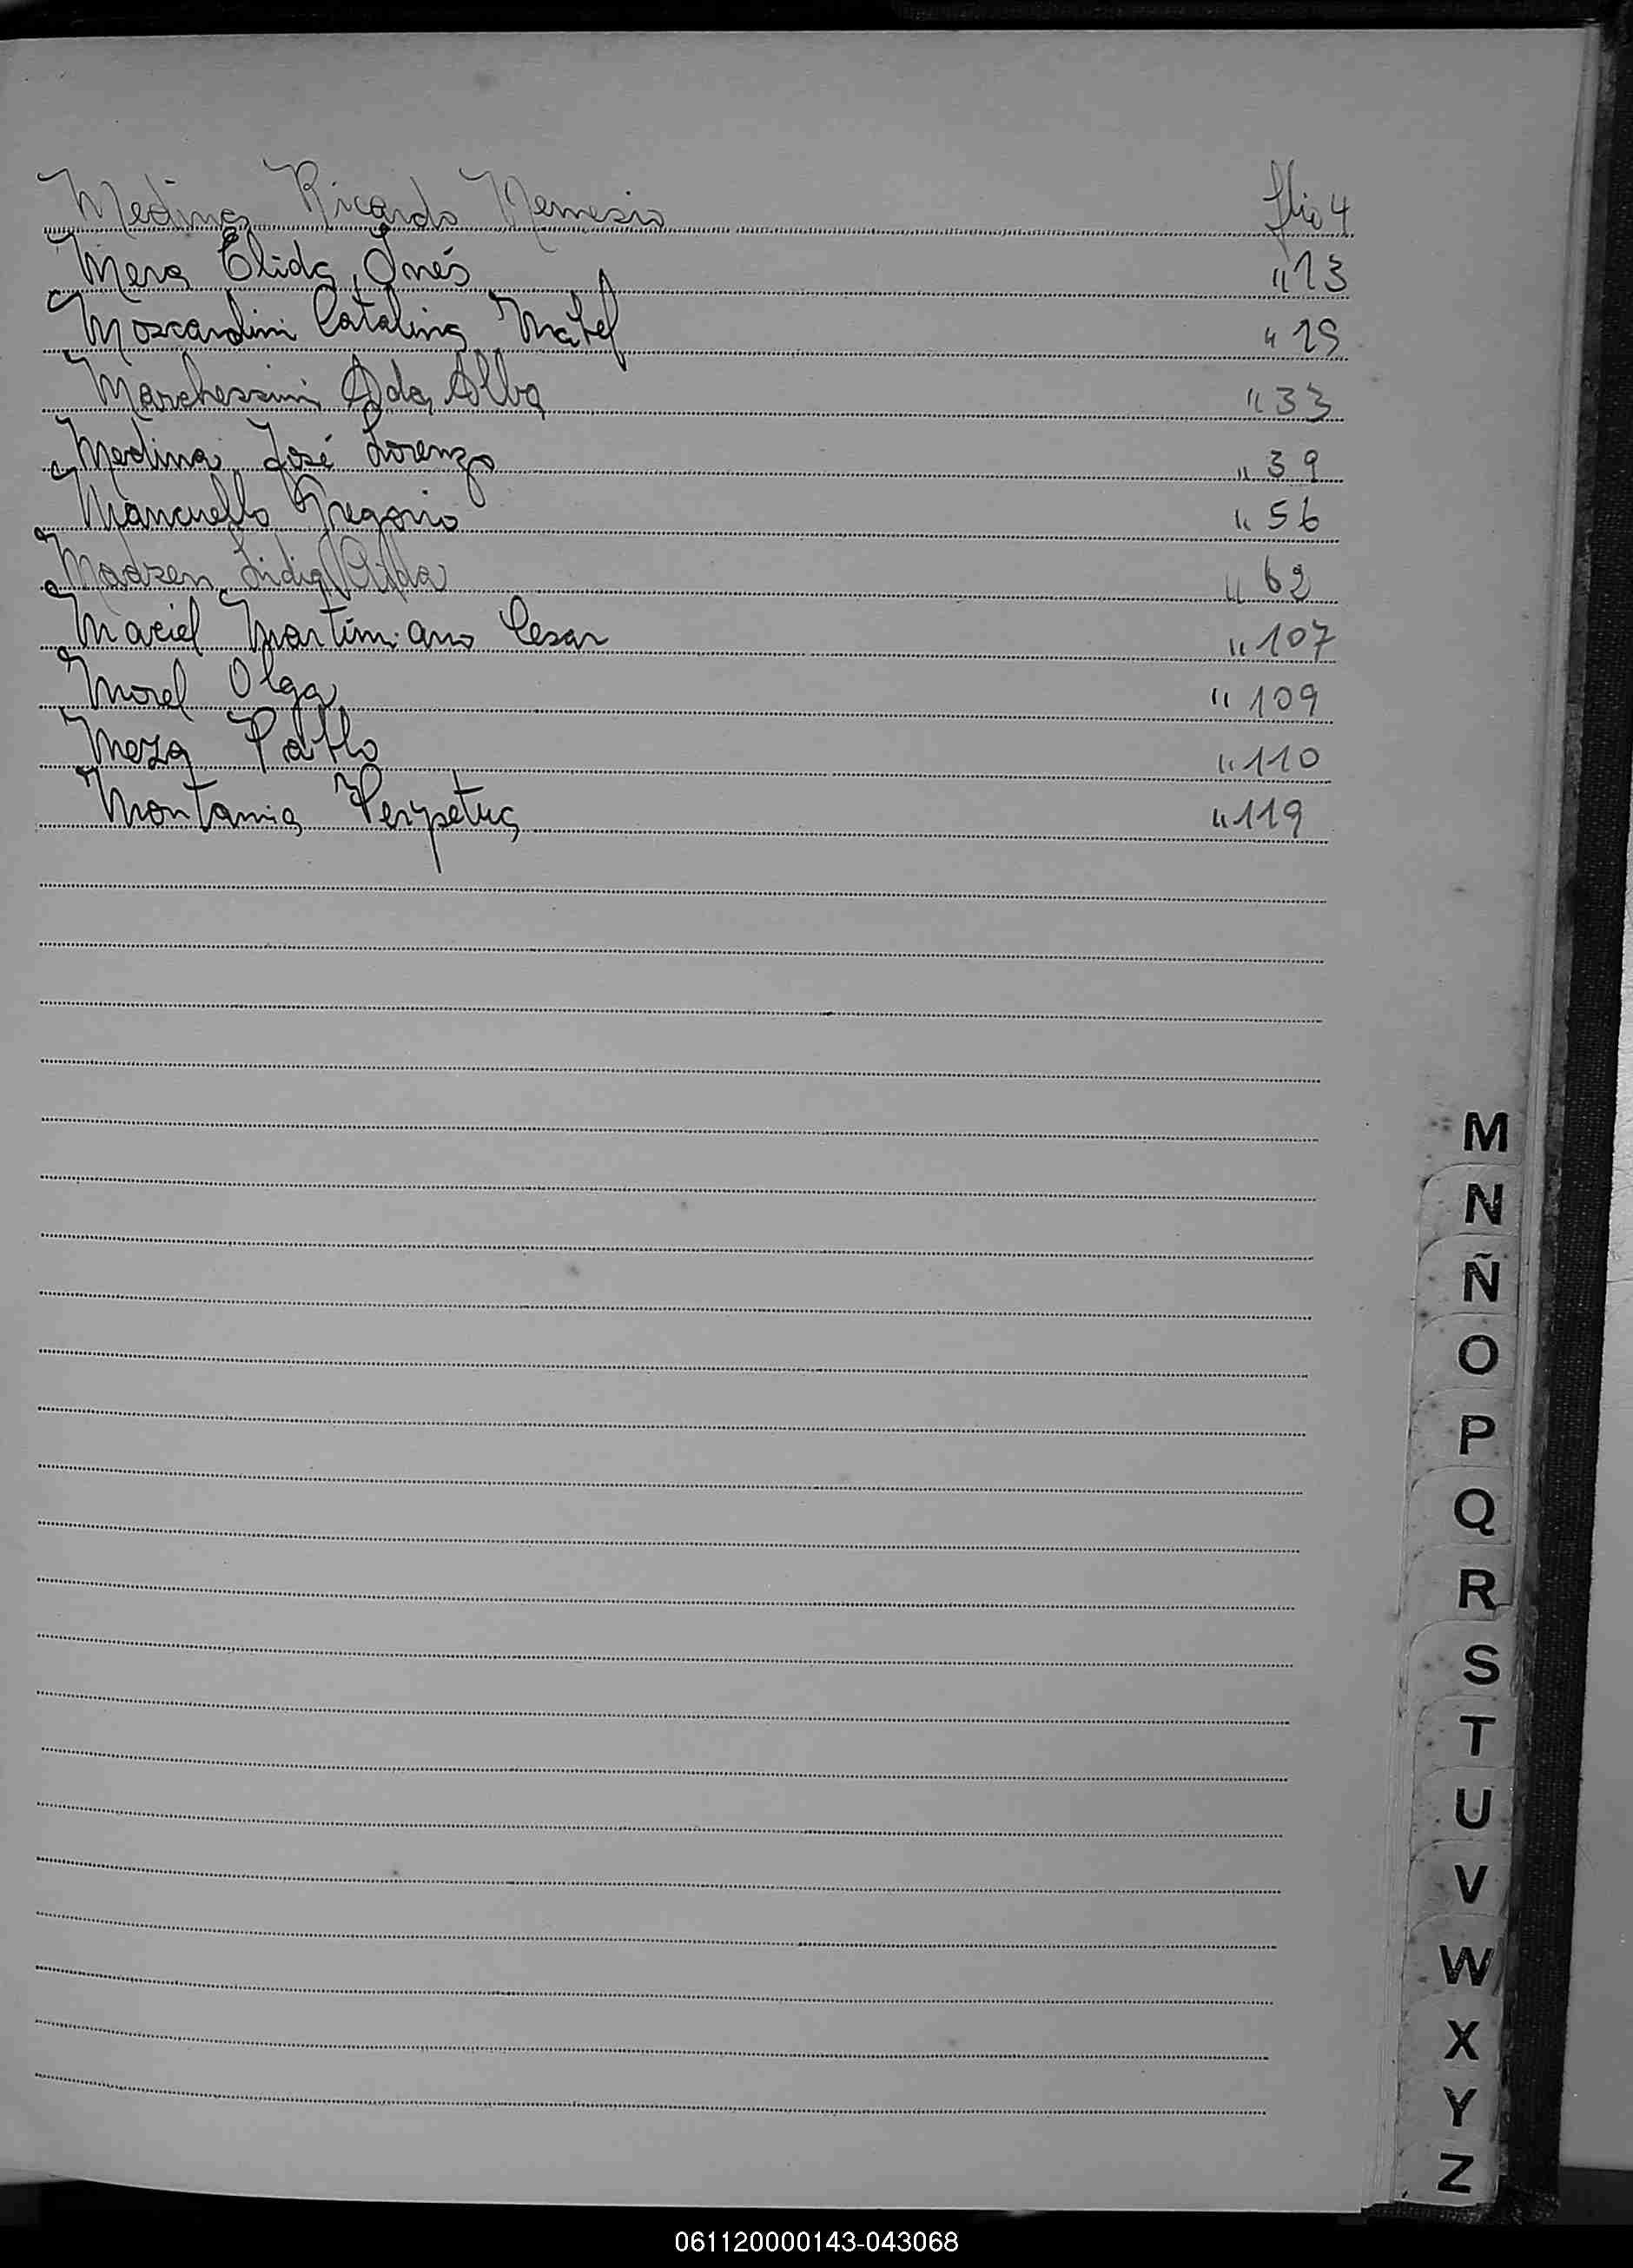 Medina Ricardo Nemesio flio 4
Mera Elida Inés " 13
Moscardini Catalina Mabel " 19
Marchessini Ada Alba " 33
Medina José Lorenzo " 39
Mancuello Gregorio " 56
Madzen Lidia " 62
Maciel Martimiano Cesar " 107
Morel Olga " 109
Meza Pablo " 110
Montania Perpetua " 119
M
N
Ñ
O
P
Q
R
S
T
U
V
W
X
Y
Z
061120000143-043068